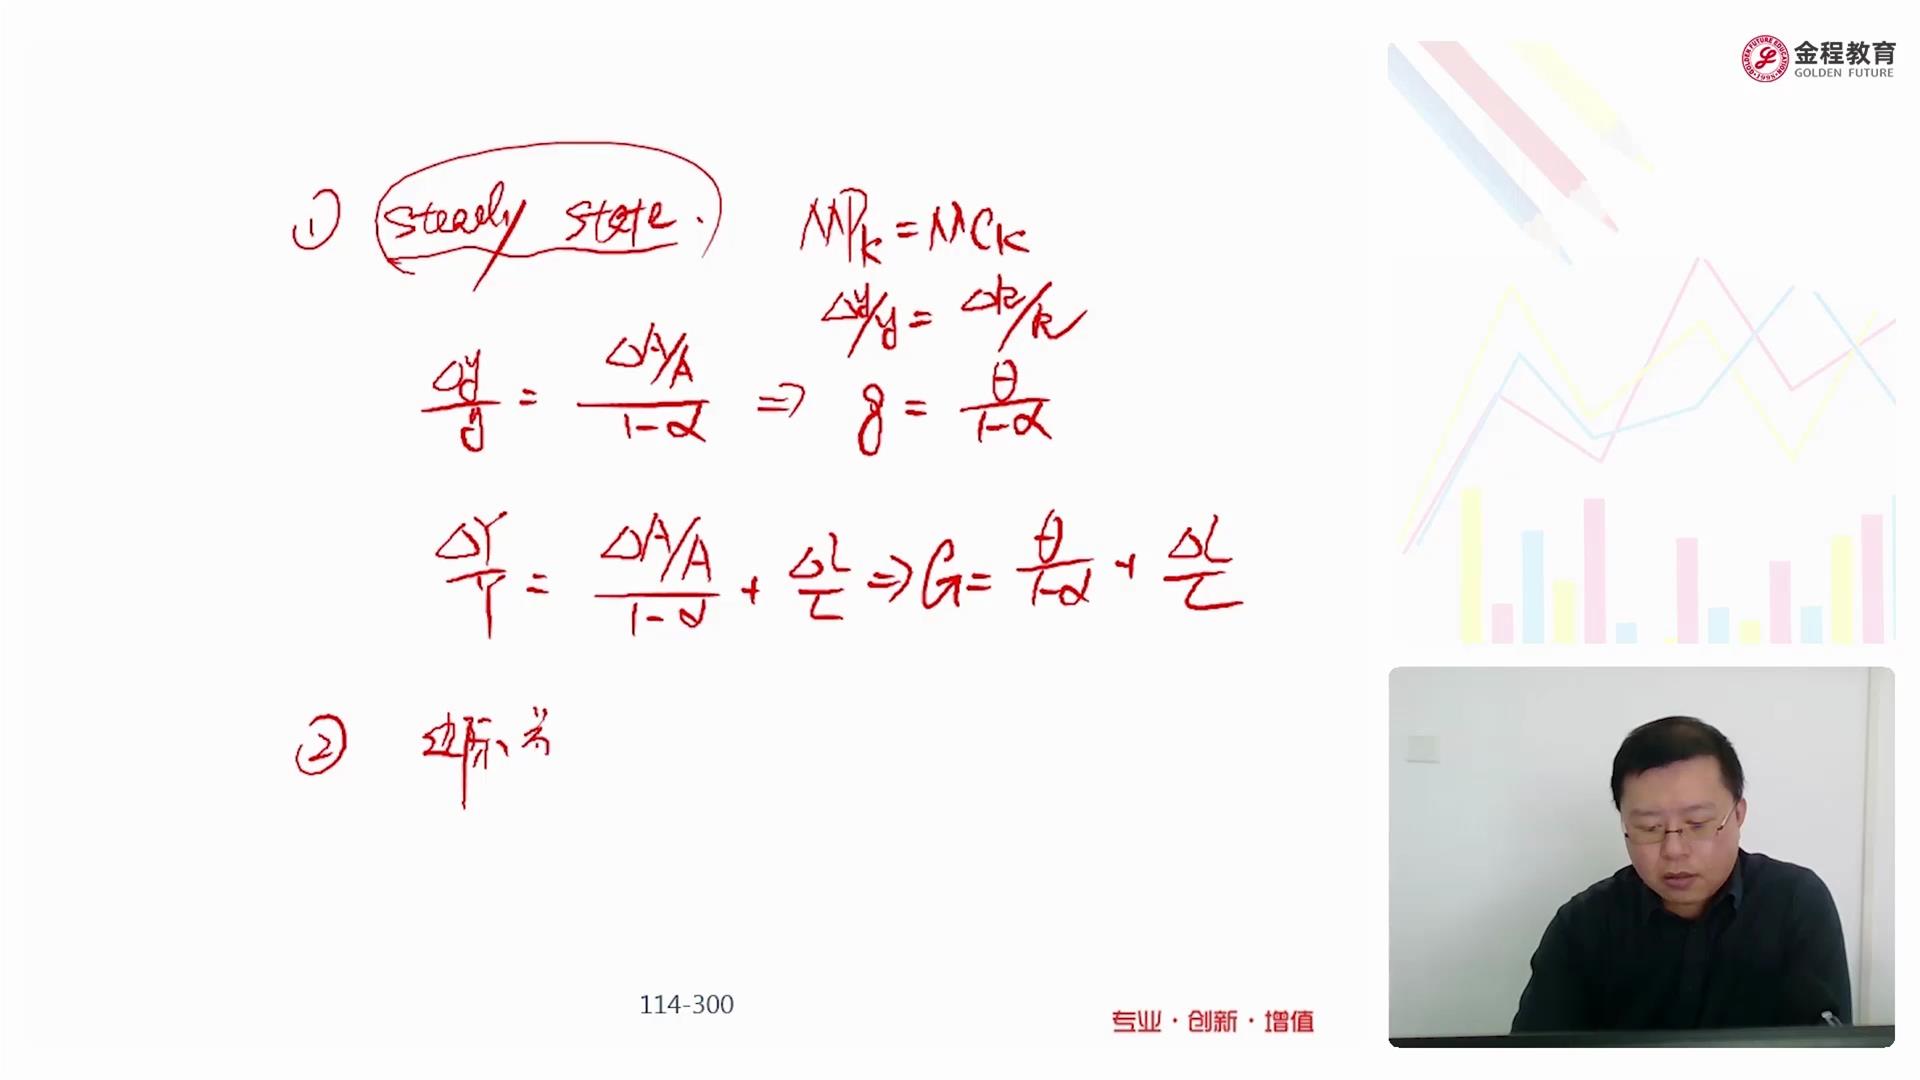 金程教育
GOLDEN FUTURE
① steady state.
MPk = MCk
Δy/y = Δk/k
Δy/y = ΔA/A/1-α ⇒ g = θ/1-α
ΔY/Y = ΔA/A/1-α + ΔL/L ⇒ G = θ/1-α + ΔL/L
② 边际
114-300
专业·创新·增值